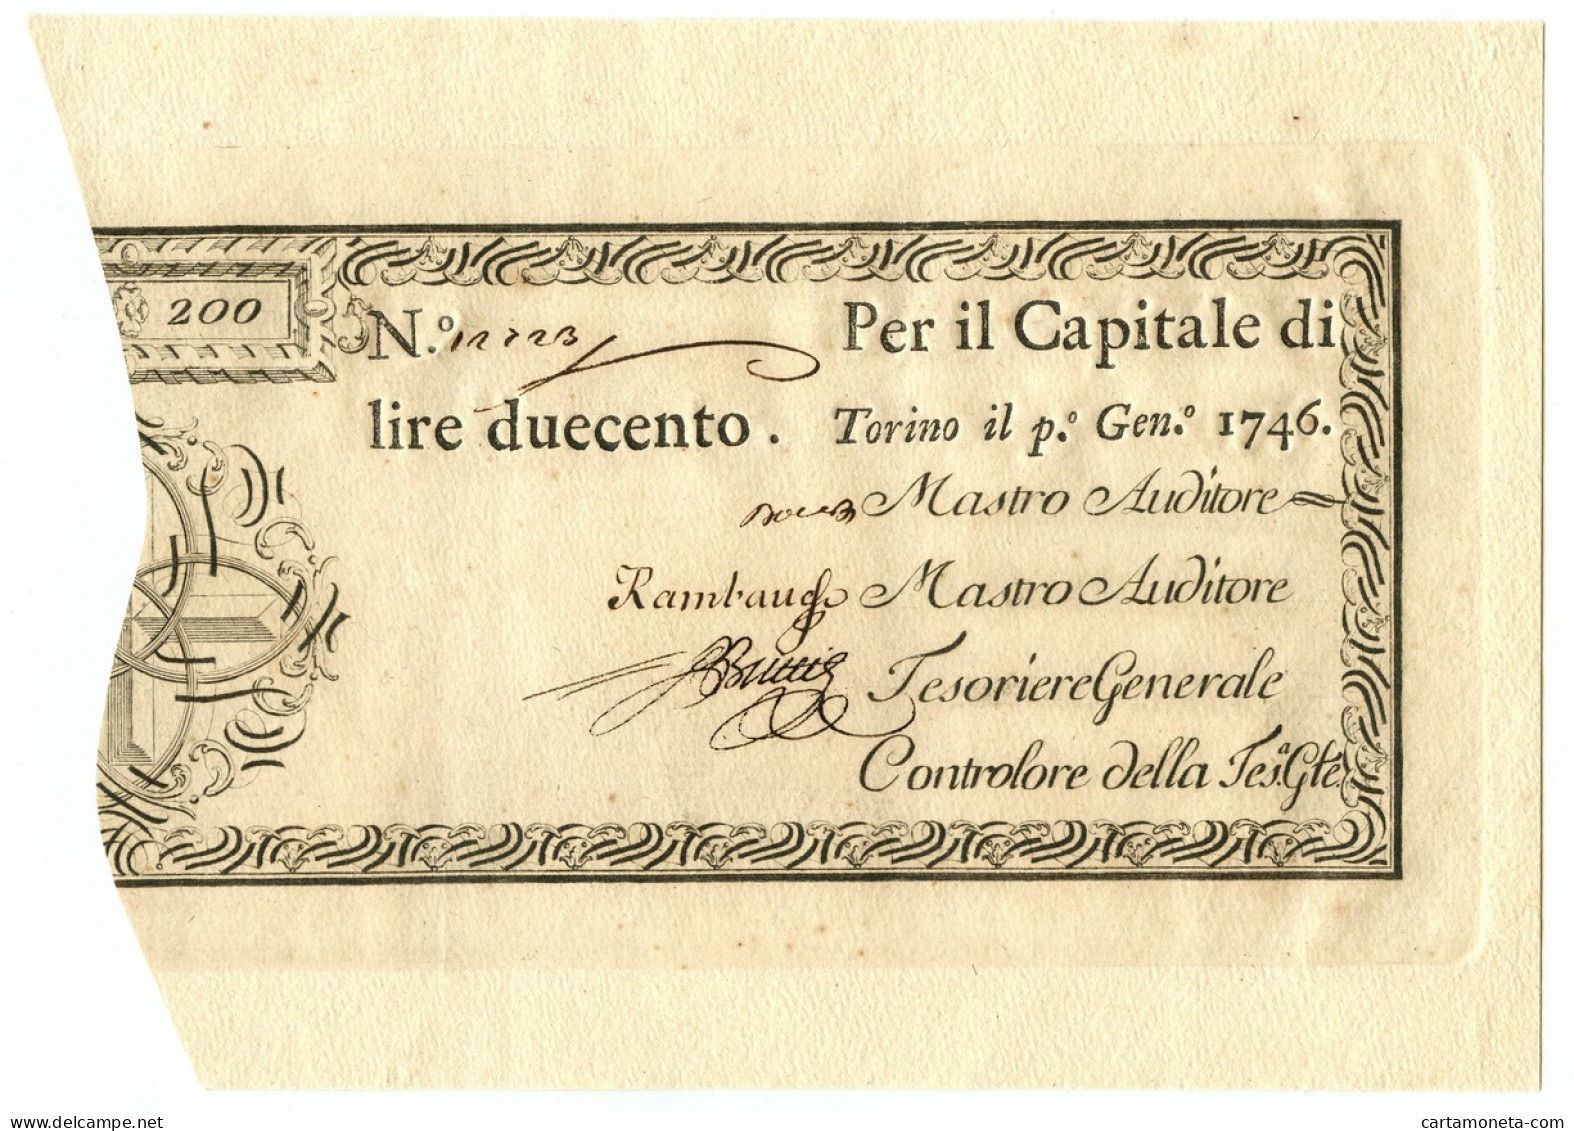 200
N.º 12723 Per il Capitale di
lire duecento . Torino il p.º Gen.º 1746.
Mastro Auditore
Mastro Auditore
Tesoriere Generale
Controlore della Tes.ª Gle
delcampe.net
cartamoneta-com